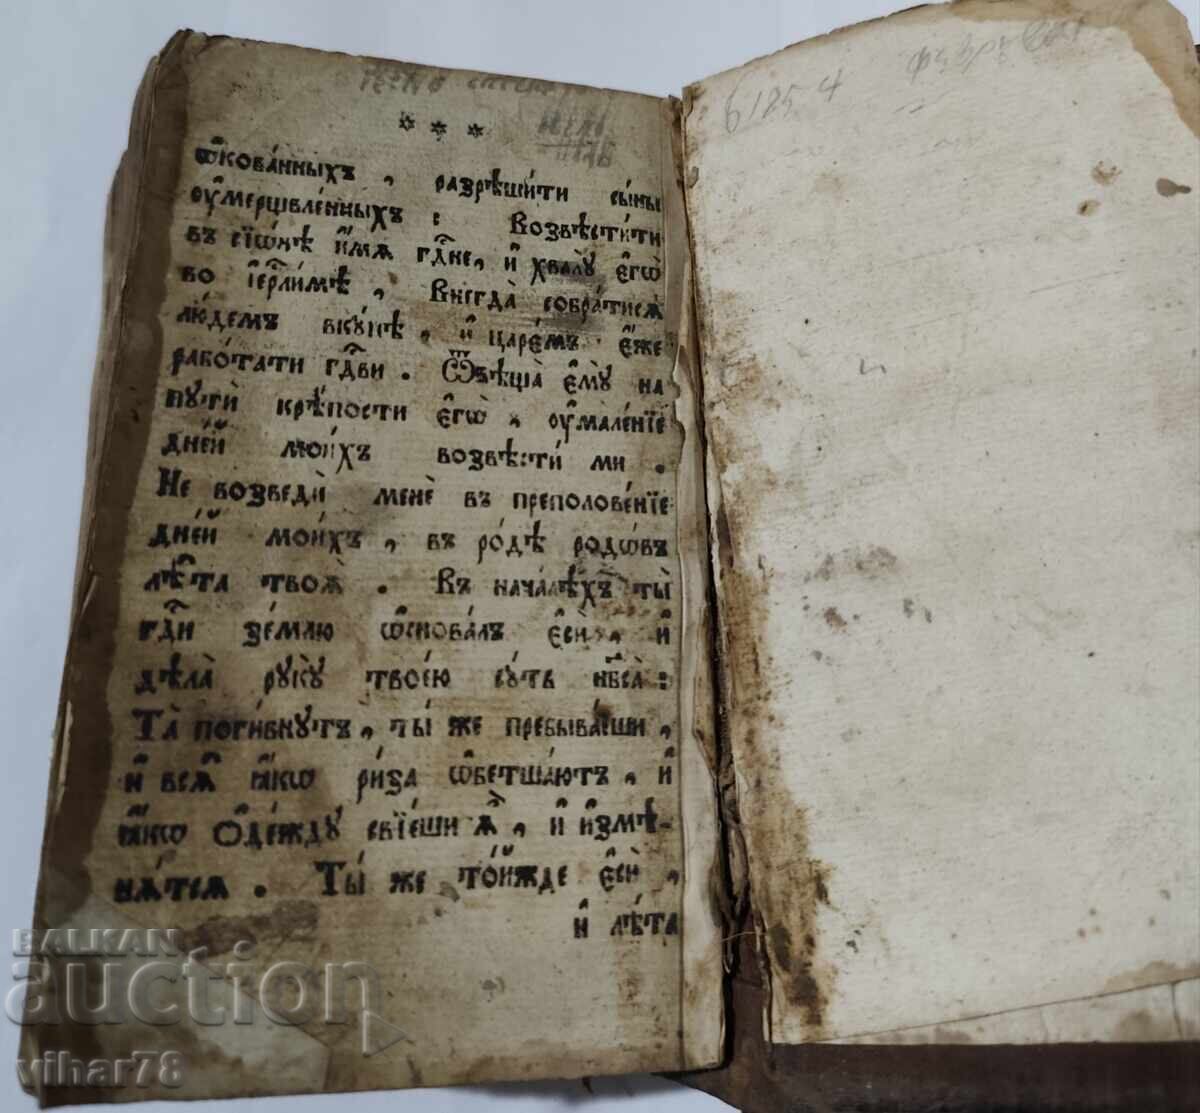 * * *
ѡ҆кова́нныхъ, разрѣши́ти сы́ны
оу҆мерщвле́нныхъ: Возвѣсти́ти
въ сїѡ́нѣ и҆́мѧ гдⷭ҇не, и҆ хвалꙋ̀ є҆гѡ̀
во і҆ерⷭ҇ли́мѣ, Внегда̀ собра́тисѧ
лю́демъ вкꙋ́пѣ, и҆ царе́мъ є҆́же
рабо́тати гдⷭ҇ви. Ѿвѣща̀ є҆мꙋ̀ на
пꙋтѝ крѣ́пости є҆гѡ̀, оу҆мале́нїе
дне́й мои́хъ возвѣстѝ ми.
Не возведѝ менѐ въ преполове́нїе
дне́й мои́хъ, въ ро́дѣ родѡ́въ
лѣ́та твоѧ̀. Въ нача́лѣхъ ты̀
гдⷭ҇и зе́млю ѡ҆снова́лъ є҆сѝ, и҆
дѣла̀ рꙋкꙋ̀ твоє́ю сꙋ́ть нб҃са̀:
Та̀ поги́бнꙋтъ, ты́ же пребыва́еши,
и҆ всѧ̑ ꙗ҆́кѡ ри́за ѡ҆бетша́ютъ, и҆
ꙗ҆́кѡ ѻ҆де́ждꙋ свїе́ши ѧ҆̀, и҆ и҆змѣ-
нѧ́тсѧ. Ты́ же то́йжде є҆сѝ,
и҆ лѣ́та
61854
BALKAN
auction
vihar78